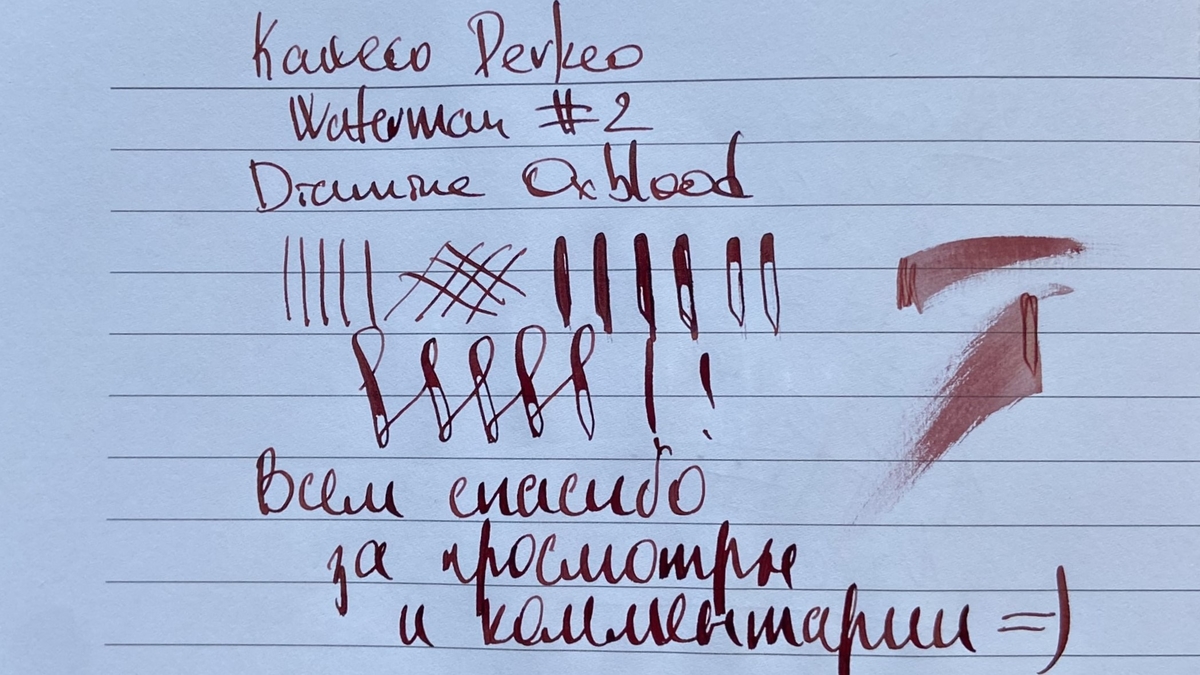 Kaweco Perkeo
Waterman #2
Diamine Oxblood
Всем спасибо
за просмотры
и комментарии =)